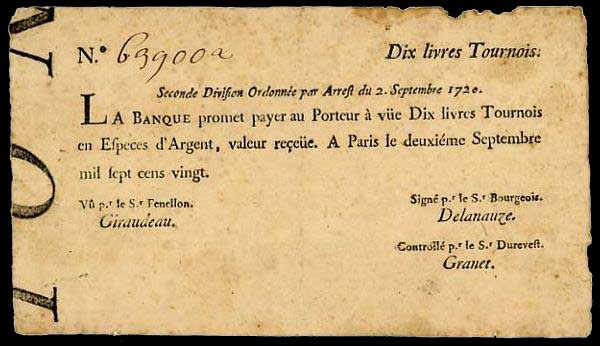 N.º 639002 Dix livres Tournois.
Seconde Division Ordonnée par Arrest du 2. Septembre 1720.
LA BANQUE promet payer au Porteur à vüe Dix livres Tournois
en Especes d'Argent, valeur reçeüe. A Paris le deuxiéme Septembre
mil sept cens vingt.
Vû p.r le S.r Fenellon. Signé p.r le S.r Bourgeois.
Giraudeau. Delanauze.
Controllé p.r le S.r Durevest.
Granet.